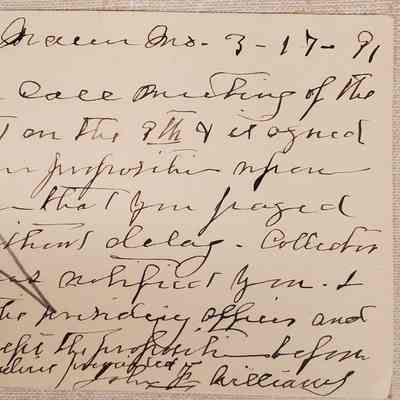 Macon Mo. 3-17-91
call meeting of the
on the 9th & it agreed
proposition upon
that you paged
without delay. Collector
notified you. &
the presiding officer and
the proposition before
John F. Williams